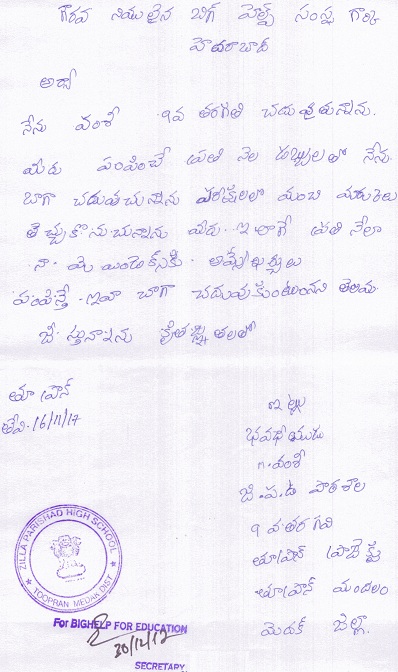 గౌరవ నియులైన బిగ్ హెల్ప్ సంస్థ గార్కి
హైదరాబాద్
ఆర్యా
నేను వంశీ 9వ తరగతి చదువుతున్నాను.
మీరు పంపించే ప్రతి నెల డబ్బులతో నేను
బాగా చదువుచున్నాను పరీక్షలలో మంచి మార్కులు
తెచ్చుకొనుచున్నాను మీరు. ఇలాగే ప్రతి నేలా
నా పై
పంపిస్తే ఇంకా బాగా చదువుకుంటానని తెలియ
జే స్తూనాన్ను కృతజ్ఞ తలతో
తూప్రాన్
తేది. 16/11/17
ఇట్లు
భవధీయుడు
గ. వంశీ
జి.ప.ఉ పాఠశాల
9 వ తరగతి
తూప్రాన్
తూప్రాన్ మండలం
మెదక్ జిల్లా.
ZILLA PARISHAD HIGH SCHOOL
TOOPRAN MEDAK DIST
For BIGHELP FOR EDUCATION
30/12/17
SECRETARY